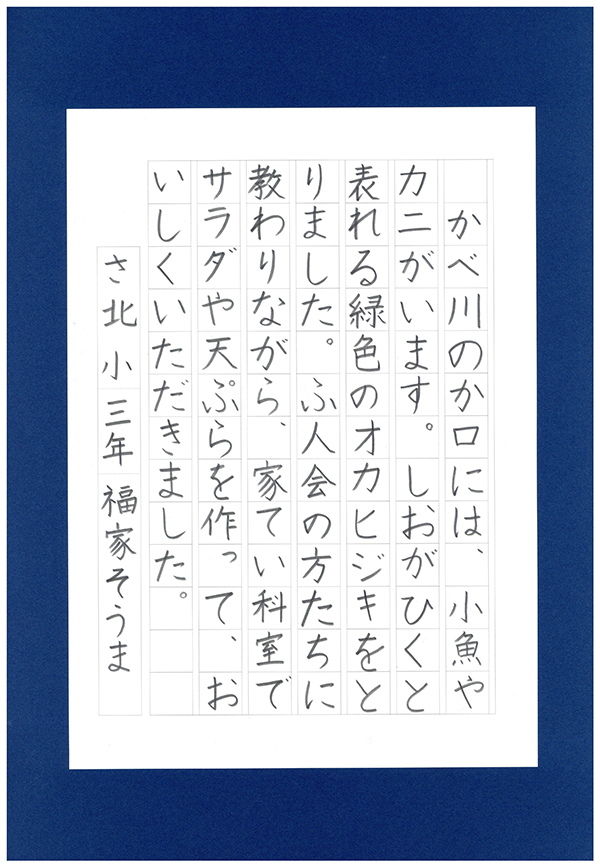 かべ川のか口には、小魚や
カニがいます。しおがひくと
表れる緑色のオカヒジキをと
りました。ふ人会の方たちに
教わりながら、家てい科室で
サラダや天ぷらを作って、お
いしくいただきました。
さ北小三年福家そうま